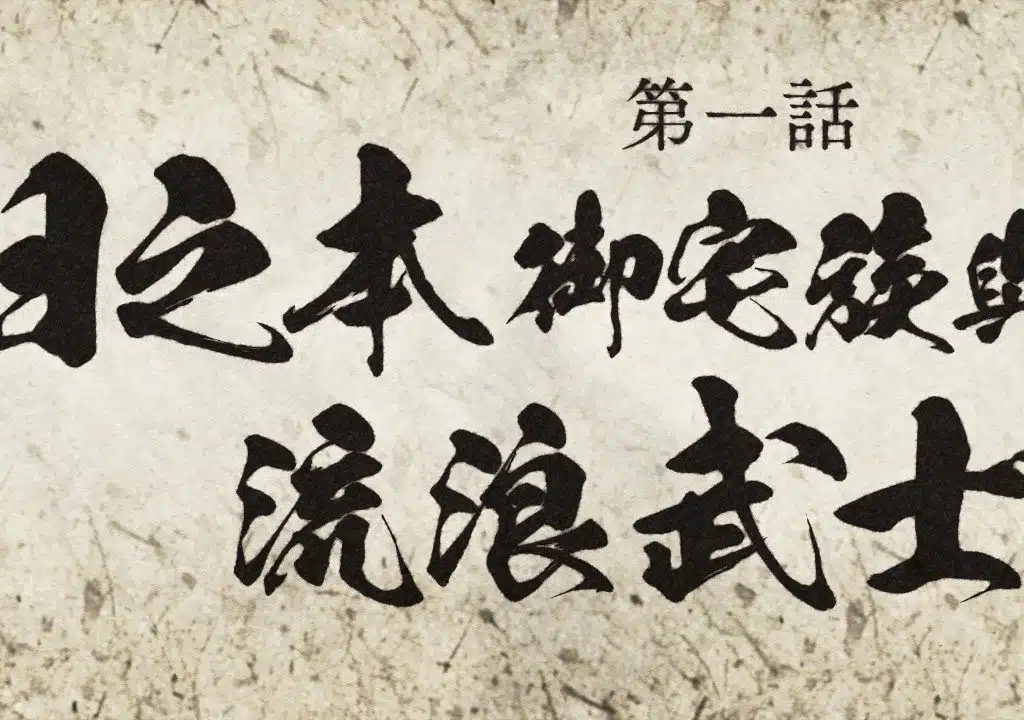 第一話
日之本 御宅族與
流浪武士